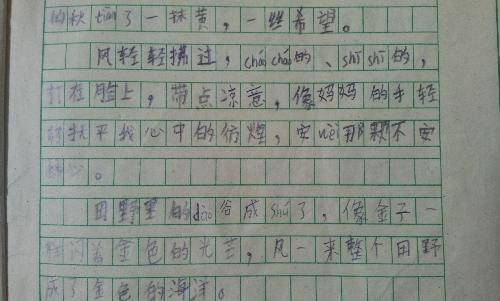 的秋tiān了一抹黄，一丝希望。
风轻轻拂过，cháo cháo的、shī shī的，
打在脸上，带点凉意，像妈妈的手轻
轻抚平我心中的彷煌，安wèi那颗不安
的心。
田野里的dào谷成shú了，像金子一
样闪着金色的光芒，风一来整个田野
成了金色的海洋。